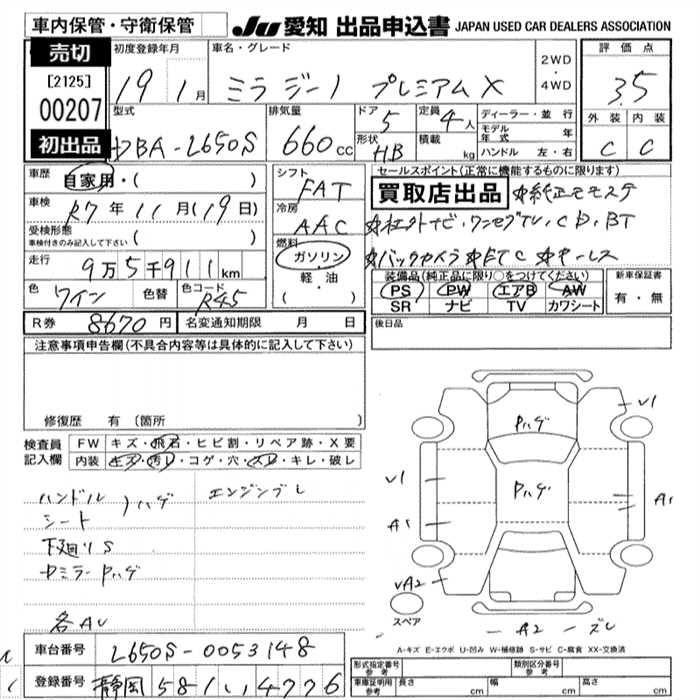 車内保管・守衛保管
JU 愛知 出品申込書 JAPAN USED CAR DEALERS ASSOCIATION
売切
[2125]
00207
初出品
初度登録年月
19 1月
車名・グレード
ミラ ジーノ プレミアムX
2WD
・
4WD
評価点
3.5
外装 内装
C C
型式
DBA-L650S
排気量
660cc
ドア
5
形状
HB
定員
4人
積載
kg
ディーラー・並行
モデル年式 年
ハンドル 左・右
車歴
自家用・( )
車検
R7年11月(19日)
受検形態
車検付きのみ記入して下さい ( )
走行
9万5千911km
色
ワイン
色替
色コード
R45
シフト
FAT
冷房
AAC
燃料
ガソリン
・
軽・油
( )
セールスポイント(正常に機能するものに限ります)
買取店出品 ☆純正モモステ
☆社外ナビ・ワンセグTV,CD,BT
☆バックカメラ ☆ETC ☆キーレス
装備品(純正品に限り○をつけてください)
PS PW エアB AW
SR ナビ TV カワシート
新車保証書
有・無
後日品
R券 8670円
名変通知期限 月 日
注意事項申告欄(不具合内容等は具体的に記入して下さい)
修復歴 有 (箇所 )
検査員記入欄
FW キズ・飛石・ヒビ割・リペア跡・X要
内装 キズ・汚レ・コゲ・穴・スレ・キレ・破レ
ハンドル
シート
)ハゲ
エンジンブレ
下廻りS
ドミラーPハゲ
各AU
Pハゲ
Pハゲ
V1
V1
A1
A1
VA2
A2
ズレ
スペア
A-キズ E-エクボ U-凹み W-補修跡 S-サビ C-腐食 XX-交換済
車台番号 L650S-0053148
登録番号 静岡 581 い 4776
形式指定番号
類別区分番号
車庫証明用参考
長さ cm
幅 cm
高さ cm